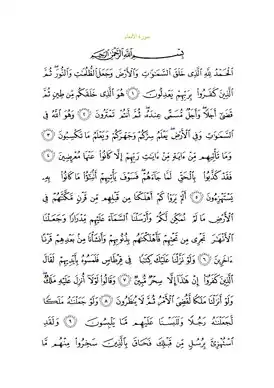 سورة الأنعام
بِسْمِ ٱللَّهِ ٱلرَّحْمَٰنِ ٱلرَّحِيمِ
ٱلْحَمْدُ لِلَّهِ ٱلَّذِى خَلَقَ ٱلسَّمَٰوَٰتِ وَٱلْأَرْضَ وَجَعَلَ ٱلظُّلُمَٰتِ وَٱلنُّورَ ثُمَّ
ٱلَّذِينَ كَفَرُوا۟ بِرَبِّهِمْ يَعْدِلُونَ ١ هُوَ ٱلَّذِى خَلَقَكُم مِّن طِينٍ ثُمَّ
قَضَىٰٓ أَجَلًا وَأَجَلٌ مُّسَمًّى عِندَهُۥ ثُمَّ أَنتُمْ تَمْتَرُونَ ٢ وَهُوَ ٱللَّهُ فِى
ٱلسَّمَٰوَٰتِ وَفِى ٱلْأَرْضِ يَعْلَمُ سِرَّكُمْ وَجَهْرَكُمْ وَيَعْلَمُ مَا تَكْسِبُونَ ٣
وَمَا تَأْتِيهِم مِّنْ ءَايَةٍ مِّنْ ءَايَٰتِ رَبِّهِمْ إِلَّا كَانُوا۟ عَنْهَا مُعْرِضِينَ ٤
فَقَدْ كَذَّبُوا۟ بِٱلْحَقِّ لَمَّا جَآءَهُمْ فَسَوْفَ يَأْتِيهِمْ أَنۢبَٰٓؤُا۟ مَا كَانُوا۟ بِهِۦ
يَسْتَهْزِءُونَ ٥ أَلَمْ يَرَوْا۟ كَمْ أَهْلَكْنَا مِن قَبْلِهِم مِّن قَرْنٍ مَّكَّنَّٰهُمْ فِى
ٱلْأَرْضِ مَا لَمْ نُمَكِّن لَّكُمْ وَأَرْسَلْنَا ٱلسَّمَآءَ عَلَيْهِم مِّدْرَارًا وَجَعَلْنَا
ٱلْأَنْهَٰرَ تَجْرِى مِن تَحْتِهِمْ فَأَهْلَكْنَٰهُم بِذُنُوبِهِمْ وَأَنشَأْنَا مِنۢ بَعْدِهِمْ قَرْنًا
ءَاخَرِينَ ٦ وَلَوْ نَزَّلْنَا عَلَيْكَ كِتَٰبًا فِى قِرْطَاسٍ فَلَمَسُوهُ بِأَيْدِيهِمْ لَقَالَ
ٱلَّذِينَ كَفَرُوٓا۟ إِنْ هَٰذَآ إِلَّا سِحْرٌ مُّبِينٌ ٧ وَقَالُوا۟ لَوْلَآ أُنزِلَ عَلَيْهِ مَلَكٌ
وَلَوْ أَنزَلْنَا مَلَكًا لَّقُضِىَ ٱلْأَمْرُ ثُمَّ لَا يُنظَرُونَ ٨ وَلَوْ جَعَلْنَٰهُ مَلَكًا
لَّجَعَلْنَٰهُ رَجُلًا وَلَلَبَسْنَا عَلَيْهِم مَّا يَلْبِسُونَ ٩ وَلَقَدِ
ٱسْتُهْزِئَ بِرُسُلٍ مِّن قَبْلِكَ فَحَاقَ بِٱلَّذِينَ سَخِرُوا۟ مِنْهُم مَّا